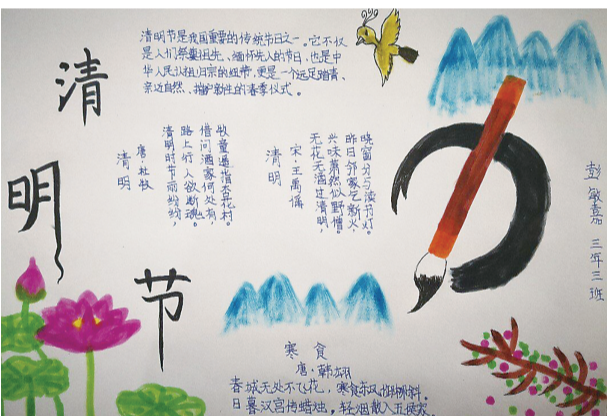 清
明
节
清明节是我国重要的传统节日之一。它不仅
是人们祭奠祖先、缅怀先人的节日,也是中
华人民认祖归宗的纽带,更是一个远足踏青、
亲近自然、护新生的春季仪式。
清明
唐·杜牧
清明时节雨纷纷,
路上行人欲断魂。
借问酒家何处有,
牧童遥指杏花村。
清明
宋·王禹偁
无花无酒过清明,
兴味萧然似野僧。
昨日邻家乞新火,
晓窗分与读书灯。
彭敏嘉 三年三班
寒食
唐·韩翃
春城无处不飞花,寒食东风御柳斜。
日暮汉宫传蜡烛,轻烟散入五侯家。